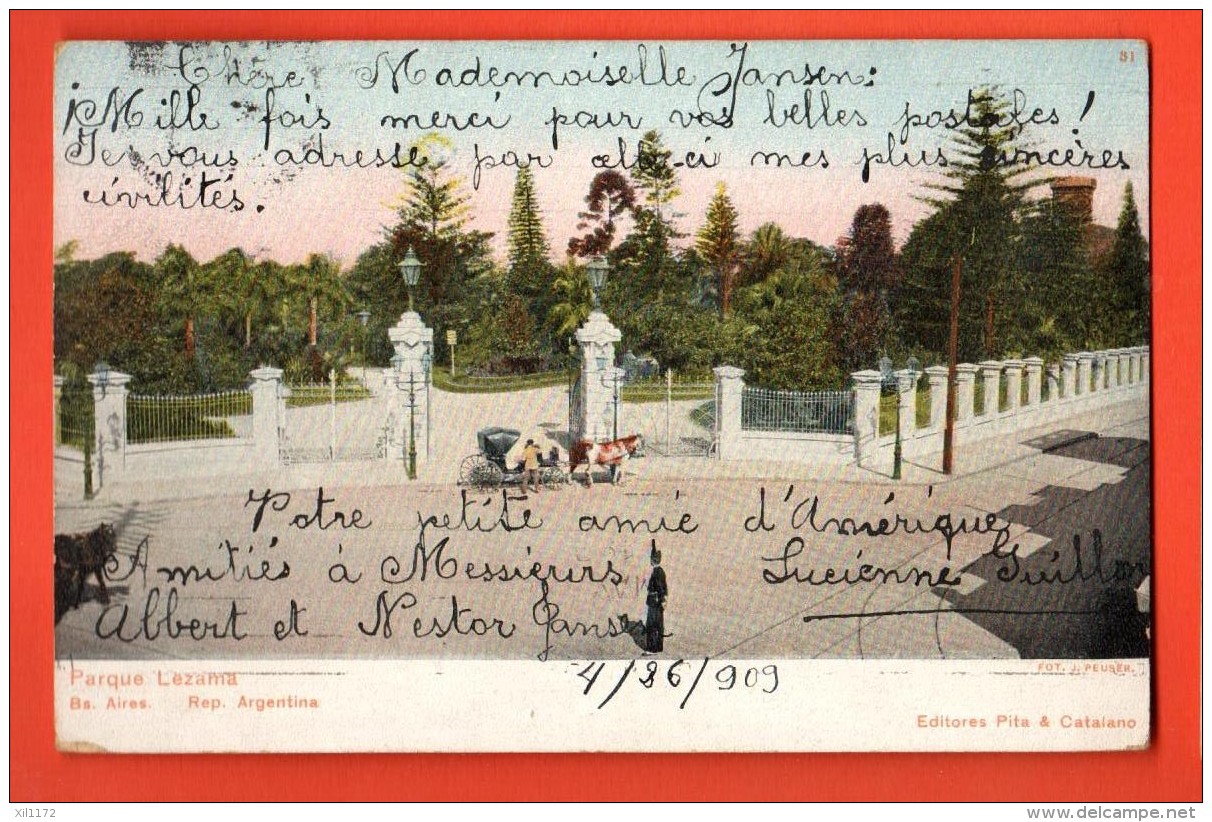 81
Chère Mademoiselle Jansen:
¡Mille fois merci pour vos belles postales!
Je vous adresse par celle-ci mes plus sincères
civilités.
Votre petite amie d'Amérique
Lucienne Guillon
Amitiés à Messieurs
Albert et Nestor Jansen
4/26/909
Parque Lezama
Bs. Aires. Rep. Argentina
FOT. J. PEUSER.
Editores Pita & Catalano
xil1172
www.delcampe.net